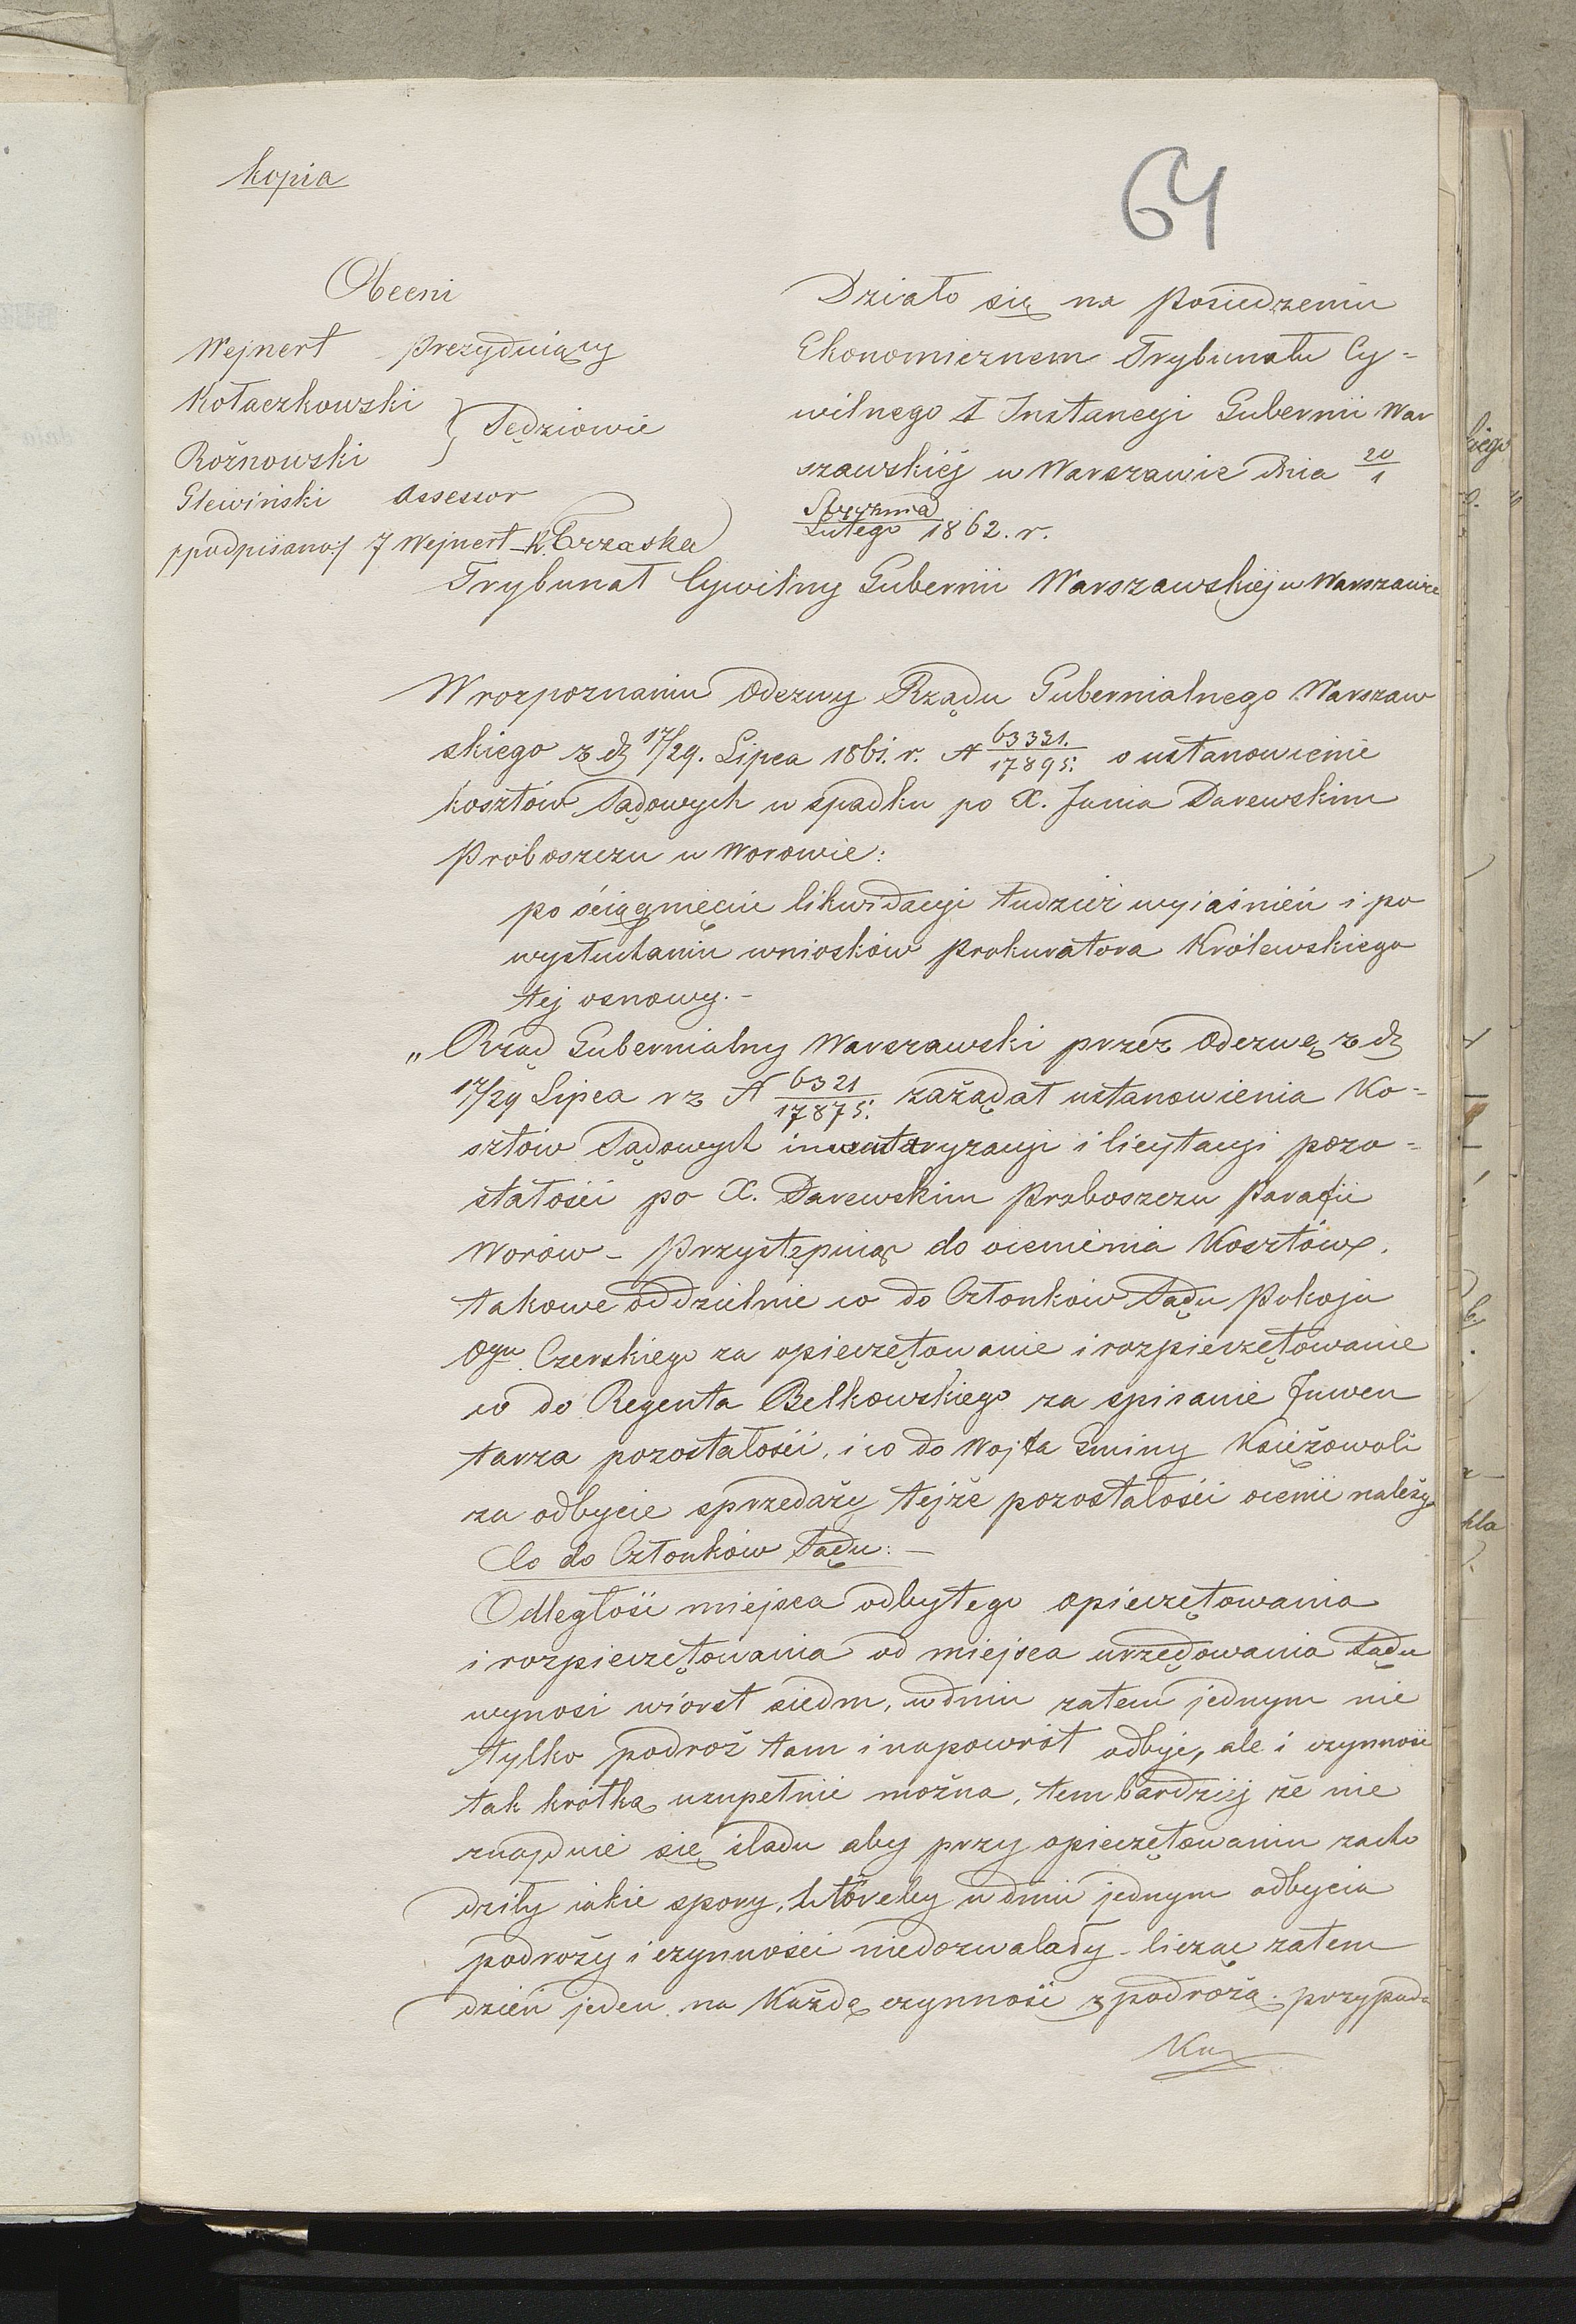 kopia
64
Obecni
Wejnert prezydujący
Kołaczkowski
Sędziowie
Rożnowski
Glewiński Assessor
/:podpisano:/ J Wejnert K. Trzaska
Działo się na Posiedzeniu
Ekonomicznem Trybunału Cy=
wilnego I Instancyi Gubernii War
szawskiéj w Warszawie dnia 20/1
Stycznia/Lutego 1862. r.
Trybunał Cywilny Gubernii Warszawskiej w Warszawie
W rozpoznaniu Odezwy Rządu Gubernialnego Warszaw
skiego z d. 17/29. Lipca 1861. r. N 63331./17895. o ustanowienie
kosztów Sądowych w spadku po X. Janie Darewskim
Proboszczu w Worowie:
po ściągnięciu likwidacyi tudzież wyiaśnień i po
wysłuchaniu wniosków Prokuratora Królewskiego
tej osnowy.-
„Rząd Gubernialny Warszawski przez Odezwę z d.
17/29 Lipca r z N 6321/17875. zażądał ustanowienia Ko=
sztów Sądowych inwentaryzacyi i licytacyi pozo=
stałości po X. Darewskim Proboszczu Parafii
Worów - Przystępuiąc do ocenienia Kosztów,
takowe oddzielnie co do Członków Sądu Pokoju
Ogu Czerskiego za opieczętowanie i rozpieczętowanie
co do Regenta Bełkowskiego za spisanie Inwen
tarza pozostałości, i co do Wojta Gminy Księżowoli
za odbycie sprzedaży tejże pozostałości ocenić należy
Co do Członków Sądu: -
Odległość miejsca odbytego opieczętowania
i rozpieczętowania od miejsca urzędowania Sądu
wynosi wiorst siedm, w dniu zatem jednym nie
tylko podróż tam i napowrót odbyć, ale i czynność
tak krótką uzupełnić można, tembardziéj że nie
znajduie się śladu aby przy opieczętowaniu zacho
dziły iakie spory, któreby w dniu jednym odbycia
podroży i czynności niedozwalały - licząc zatem
dzień jeden na Każdą czynność z podróżą przypada